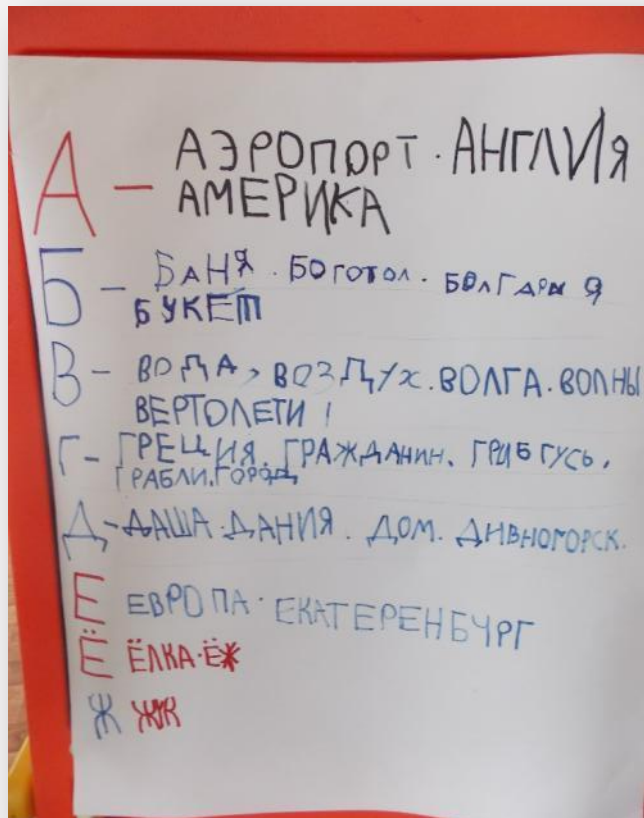 А – АЭРОПОРТ. АНГЛИЯ
АМЕРИКА
Б – БАНЯ. БОГОТОЛ. БОЛГАРИЯ
БУКЕТ
В – ВОДА, ВОЗДУХ. ВОЛГА. ВОЛНЫ
ВЕРТОЛЕТИ!
Г – ГРЕЦИЯ. ГРАЖДАНИН. ГРИБ ГУСЬ.
ГРАБЛИ. ГОРОД
Д – ДАША. ДАНИЯ. ДОМ. ДИВНОГОРСК.
Е ЕВРОПА. ЕКАТЕРЕНБУРГ
Ё ЁЛКА. ЁЖ
Ж ЖУК